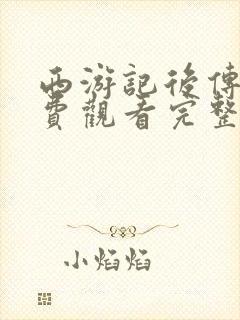 西游記後傳
費觀看完整
小焰焰